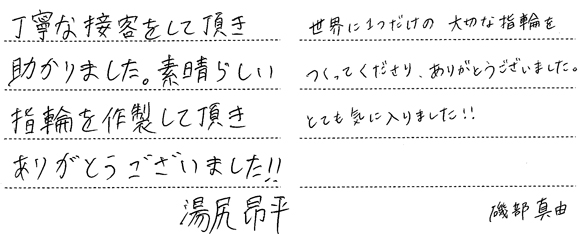 丁寧な接客をして頂き
助かりました。素晴らしい
指輪を作製して頂き
ありがとうございました!!
湯尻 昂平
世界に1つだけの 大切な指輪を
つくってくださり、ありがとうございました。
とても気に入りました!!
磯部 真由